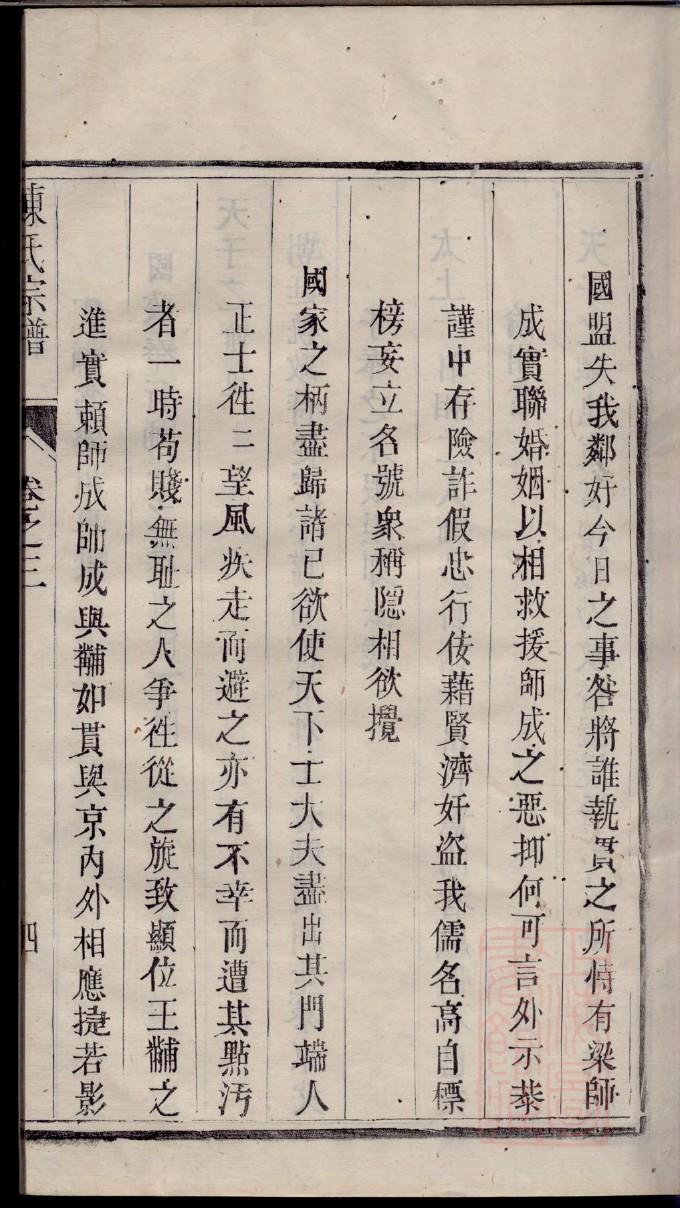 國盟失我鄰好今日之事咎將誰執貫之所恃有梁師
成實聯婚姻以相救援師成之惡抑何可言外示恭
謹中存險詐假忠行佞藉賢濟奸盜我儒名高自標
榜妄立名號衆稱隱相欲攬
國家之柄盡歸諸已欲使天下士大夫盡出其門端人
正士徃二望風疾走而避之亦有不幸而遭其點汚
者一時苟賤無耻之人爭徃從之旋致顯位王黼之
進實頼師成師成與黼如貫與京内外相應捷若影
陳氏宗譜
卷之三
四